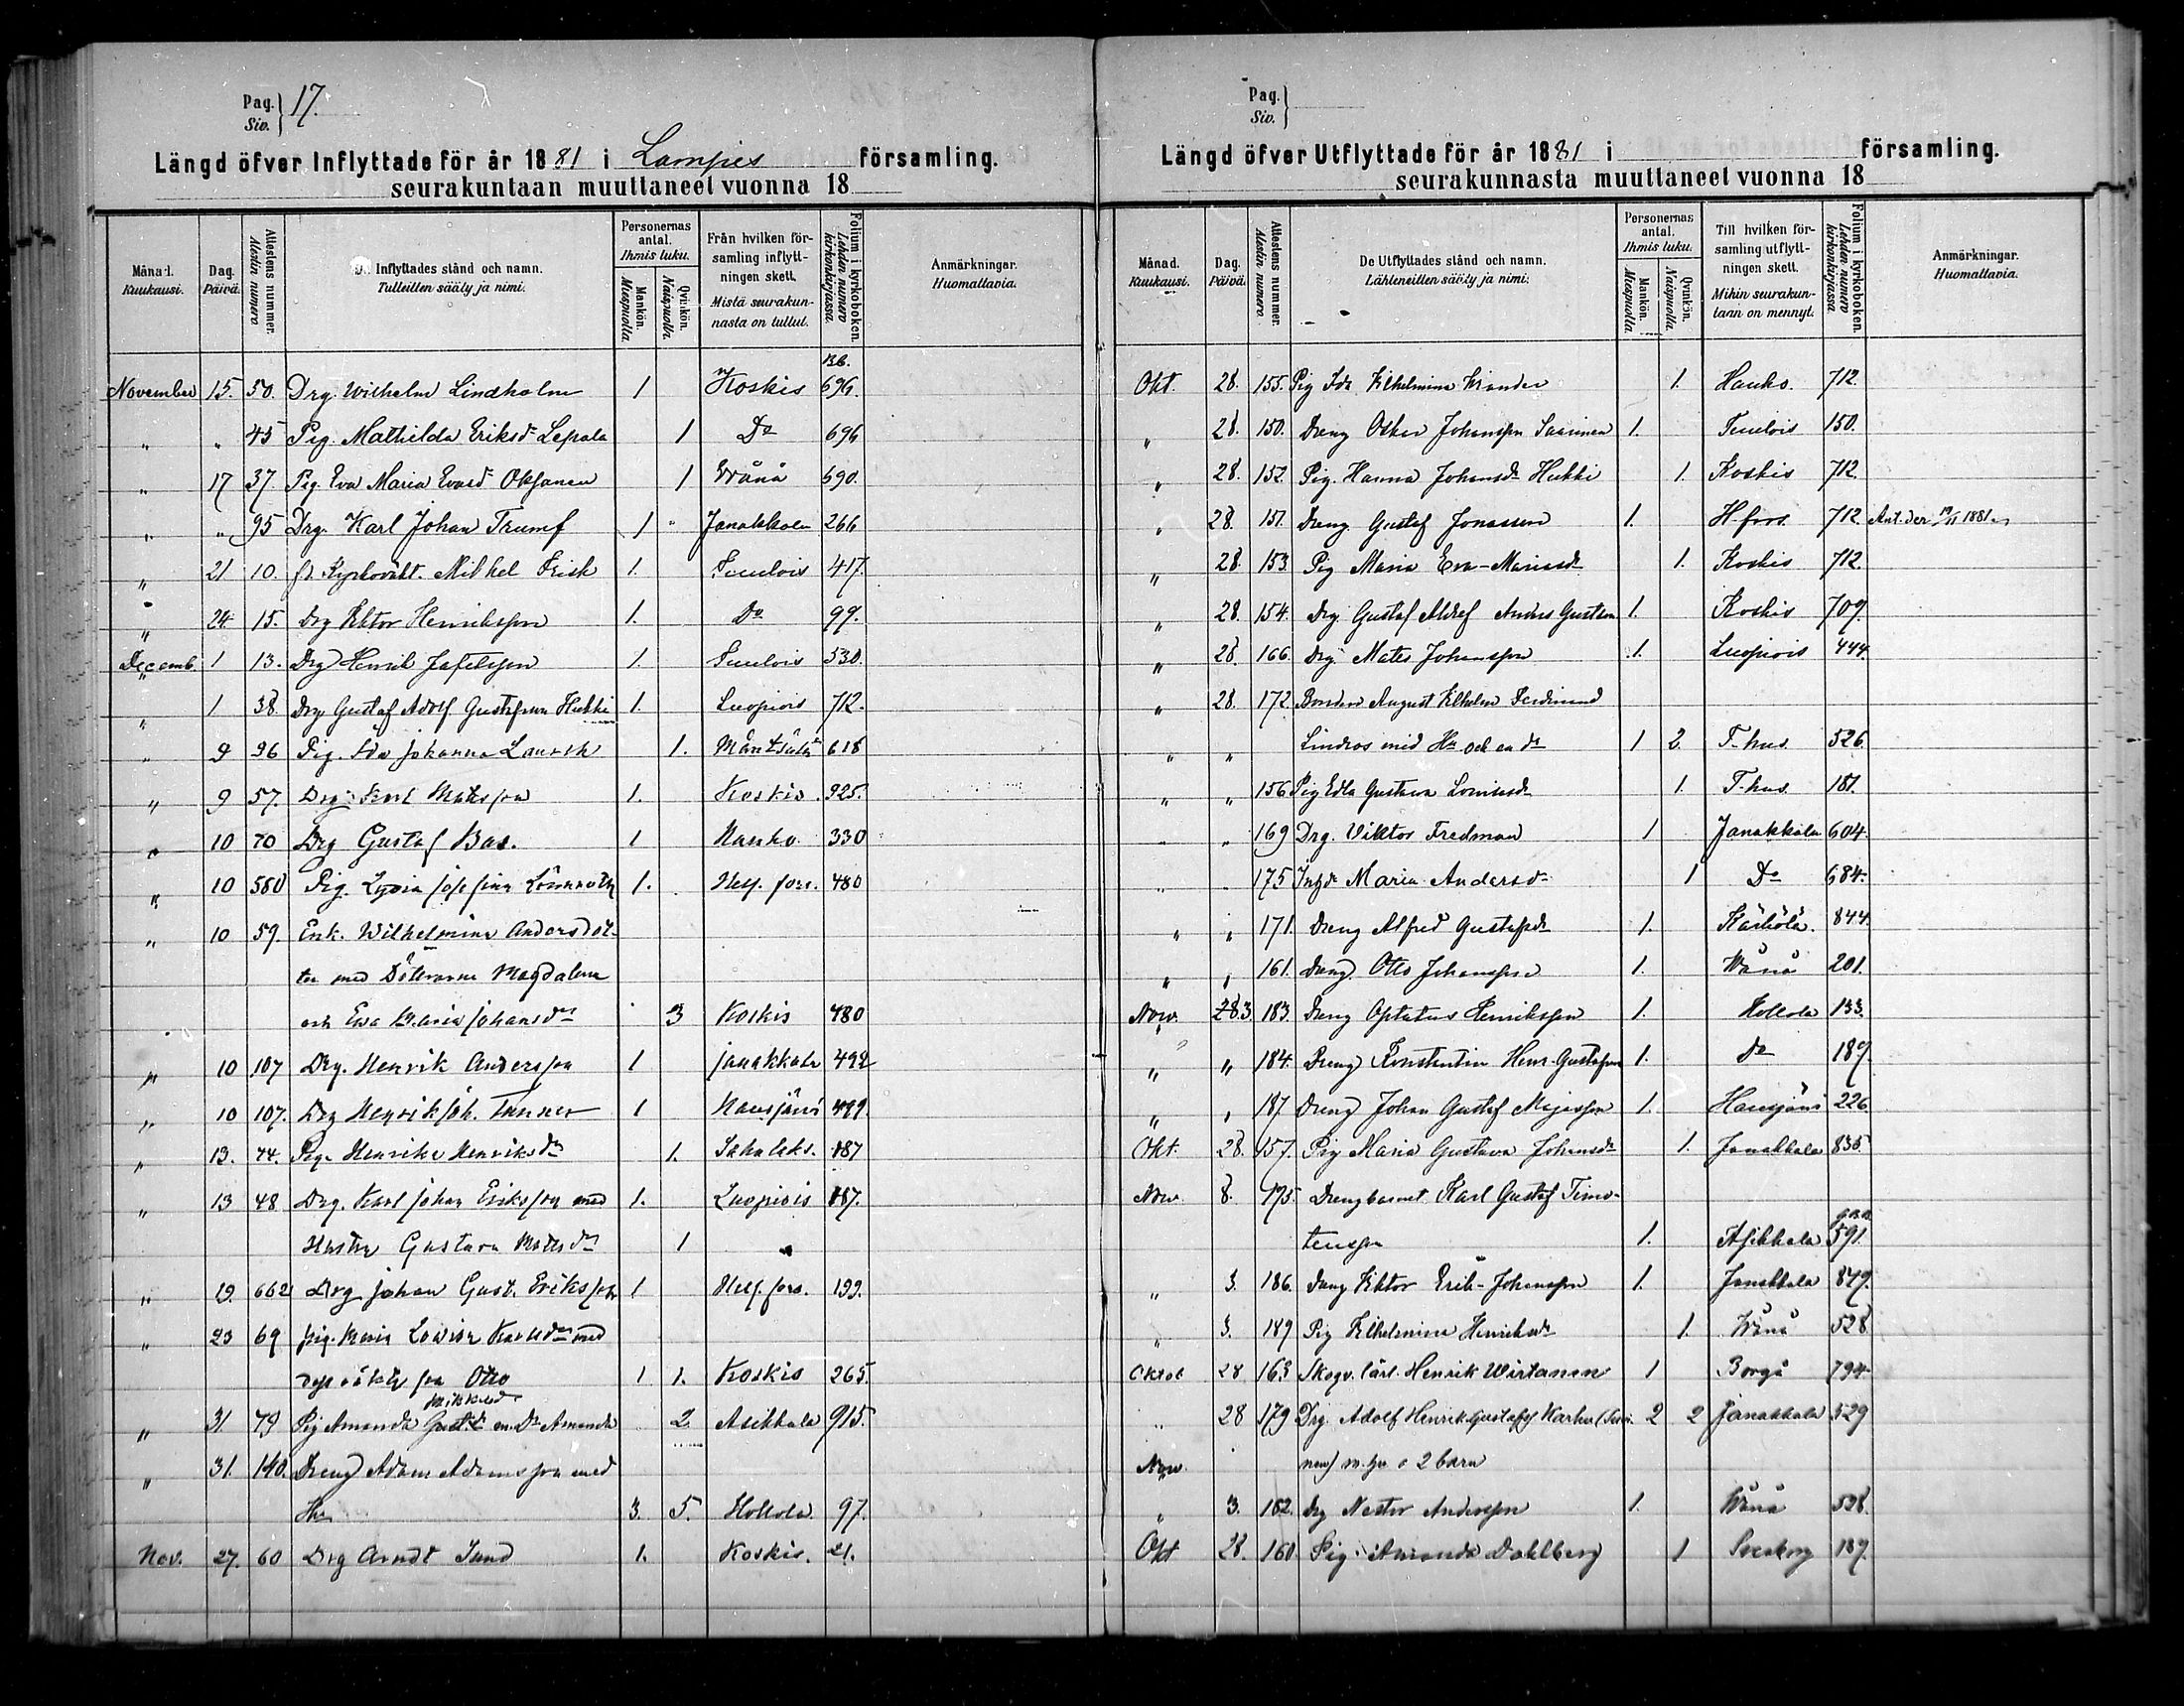 Pag. Siv. 17.
Längd öfver Inflyttade för år 1881 i Lampis församling.
seurakuntaan muuttaneet vuonna 18
Månad. Kuukausi. Dag. Päivä. Attestens nummer. Alestin numero De Inflyttades stånd och namn. Tulleitten sääty ja nimi. Personernas antal. Ihmis luku. Mankön. Miespuolia. Qvinkön. Naispuolia. Från hvilken församling inflyttningen skett. Mistä seurakunnasta on tullut. Folium i kyrkoboken. Lehden numero kirkonkirjassa Anmärkningar. Huomattavia.
November 15. 50. Drg. Wilhelm Lindholm 1 Koskis 696.
" " 45 Pig. Mathilda Eriksdr Lepola 1 Do 696
" 17 37 Pig. Eva Maria Evasdr Oksanen 1 Wånå 690.
" " 95 Drg. Karl Johan Trumf 1 " Janakkala 266
" 21 10. fd. Kyrkovakt. Mikkel Frisk 1. Tuulois 417.
" 24 15. Drg Viktor Henriksson 1. Do 99.
Decemb. 1 13. Drg Henrik Josefsson 1. Tuulois 530.
" 1 38. Drg Gustaf Adolf Gustafsson Hukki 1. Luopiois 712.
" 9 96 Pig. Ida Johanna 1. Mäntsälä 618
" 9 57. Drg. Karl Matsson 1. Koskis 925.
" 10 70 Drg Gustaf Bas. 1 Hauho 330
" 10 580 Pig. Josefina Lönnroth 1. Helf. fors. 480
" 10 59. Enk. Wilhelmina Andersdot-
ter med Döttrarna Magdalena
och Eva Maria Johansdr 3 Koskis 480
" 10 107 Drg. Henrik Andersson 1 Janakkala 492
" 10 107. Drg Henrik Joh. Tanner 1 Hausjärvi 499.
" 13. 44. Pig. Henrika Henriksdr 1. Sahalaks. 187
" 13 48 Drg. Karl Johan Eriksson med 1. Luopiois 187.
Hustru Gustava Matsdr 1
" 19. 662 Drg Johan Gust. Eriksson 1 Helf. fors. 199.
" 23 69 Pig. Maria Lovisa Karlsdr med
oäkta son Otto 1 1. Koskis 265.
Mikkelsd
" 31. 79 Pig Amanda Gustdr en Dr Amanda 2 Asikkala 915.
" 31. 140. Dreng Adam Adamsson med
Hu 3. 5. Hollola 97.
Nov. 27. 60 Drg Arndt Sund 1. Koskis. 21.
Pag. Siv.
Längd öfver Utflyttade för år 1881 i församling.
seurakunnasta muuttaneet vuonna 18
Månad. Kuukausi. Dag. Päivä. Attestens nummer. Alestin numero. De Utflyttades stånd och namn. Lähteneitten sääty ja nimi. Personernas antal. Ihmis luku. Mankön. Miespuolia. Qvinkön. Naispuolia. Till hvilken församling utflyttningen skett. Mihin seurakuntaan on mennyt. Folium i kyrkoboken. Lehden numero kirkonkirjassa Anmärkningar. Huomattavia.
Okt. 28. 155. Pig Ida Vilhelmina 1. Hauho. 712.
" 28. 150. Dreng Oskar Johansson Saarinen 1. Tuulois 150.
" 28. 152. Pig. Hanna Johansdr Hukki 1. Koskis 712.
" 28. 151. Dreng Gustaf Jonasson 1. H fors. 712 1881
" 28. 153. Pig Maria Eva-Mariasdr 1. Koskis 712.
" 28. 154. Drg. Gustaf Anders Gustson 1. Koskis 709.
" 28. 166. Drg Mats Johansson 1. Luopiois 444.
" 28. 172. Bonden August Vilhelm Ferdinand
" " Lindros med Hu och en dr 1 2. T-hus. 526.
" " 156 Pig Edla Gustava Lovisasdr 1. T-hus. 181.
" " 169 Drg. Viktor Fredman 1 Janakkala 604.
" " 175 Maria Andersdr 1 Do 684.
" " 171. Dreng Alfred Gustafs 1. Kärkölä. 844.
" " 161. Dreng Otto Johansson 1. Wånå 201.
Nov. 28.3 183. Dreng Optatus Henriksson 1. Hollola 133.
" " 184. Dreng Konstantin Henr. Gustafson 1. Do 189.
" " 187 Dreng Johan Gustaf Majasson 1. Hausjärvi 226
Okt. 28. 157. Pig Maria Gustava Johansdr 1. Janakkala 835
Nov. 8. 195. Drengbarnet Karl Gustaf Timo-
teusson 1. Asikkala 591.
" 3. 186. Dreng Viktor Erik-Johansson 1. Janakkala 849.
" 3. 189 Pig Vilhelmina Henriksdr 1. Wånå 528
Oktob 28 163 Skogv. lärl. Henrik Wirtanen 1 Borgå 794.
" 28 179 Drg. Adolf Henrik Gustafss Karhu 2 2 Janakkala 529
Nov. nen) m. hu o 2 barn
" 3. 182. Drg Nestor Andersson 1. Wånå 528.
Okt 28. 160. Pig. Amanda Dahlberg 1 Sveaborg 189.